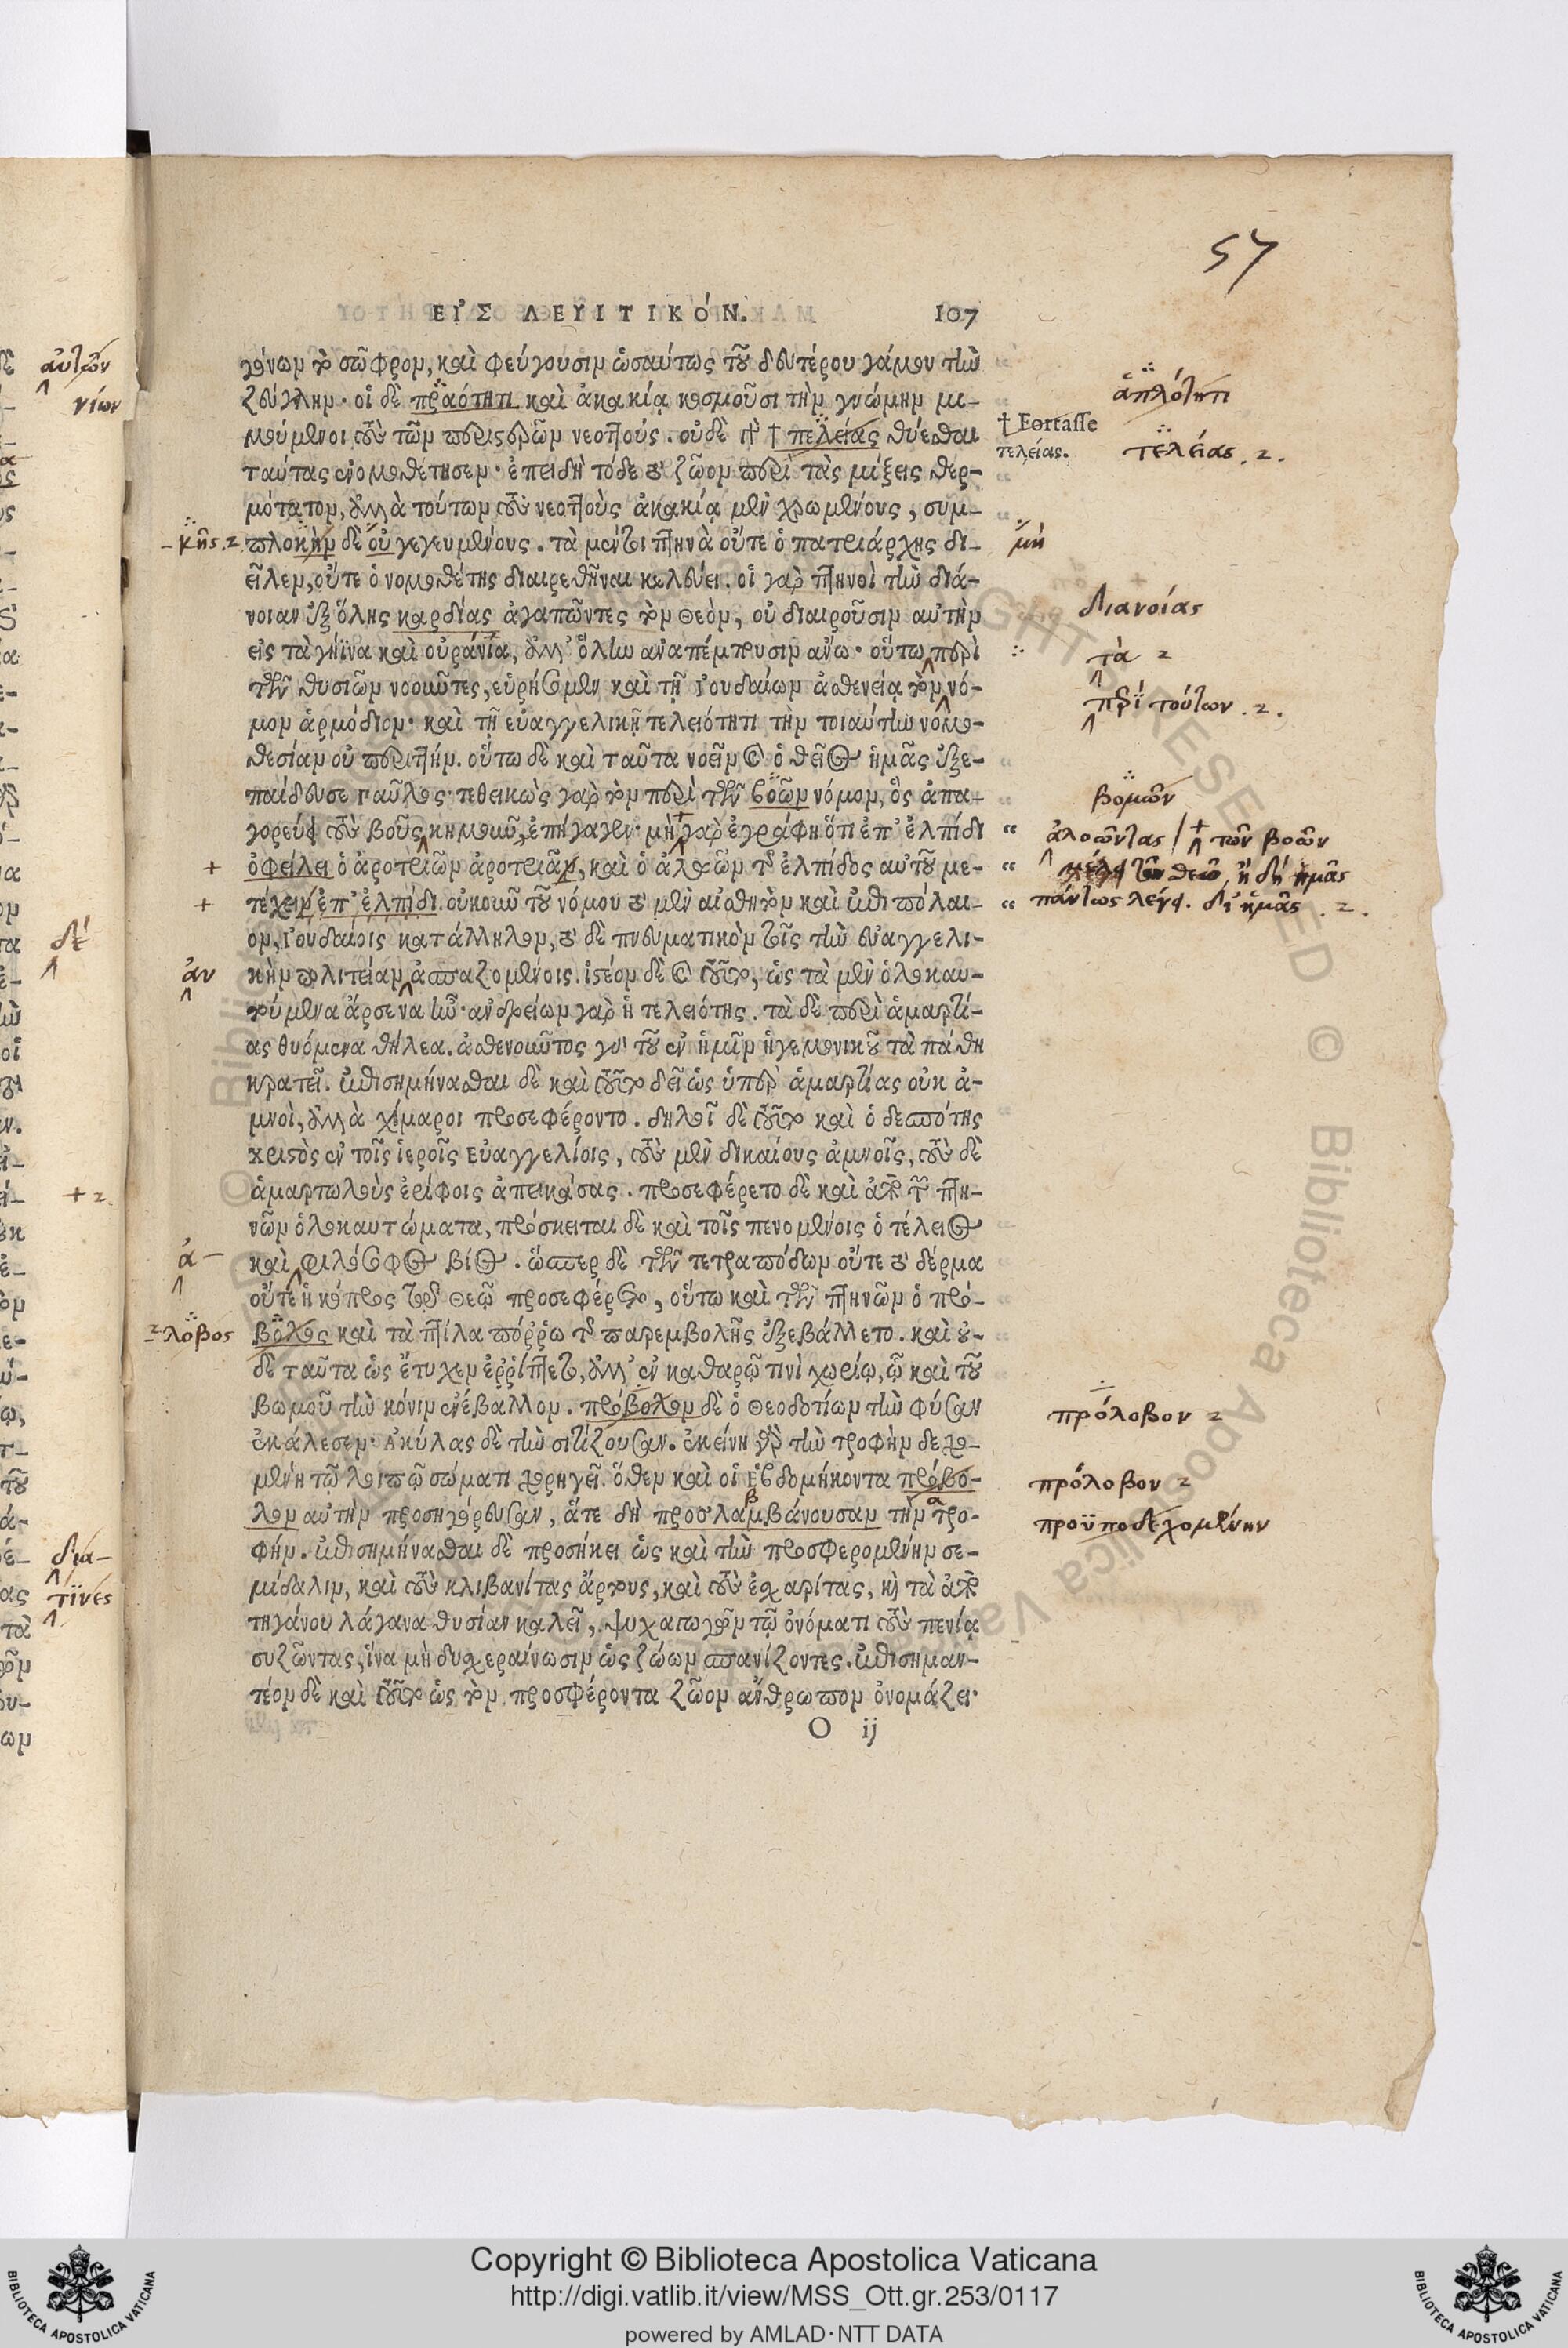 57
ΕΙ᾿Σ ΛΕΥΙΤΙΚΟ΄Ν. 107
γένων τὸ σῶφρον, καὶ φεύγουσιν ὡσαύτως τοῦ δευτέρου γάμου τὴν
ζεύγλην· οἱ δὲ πραότητι καὶ ἀκακίᾳ κοσμοῦσι τὴν γνώμην μι-
μούμενοι τοὺς τῶν περιστερῶν νεοττούς. οὐδὲ γὰρ † πελείας θύεσθαι
ταύτας ἐνομοθέτησεν· ἐπειδὴ τόδε τὸ ζῶον περὶ τὰς μίξεις θερ-
μότατον, ἀλλὰ τούτων τοὺς νεοττοὺς ἀκακίᾳ μὲν χρωμένους, συμ-
πλοκὴν δὲ οὐ γεγευμένους. τὰ μέντοι πτηνὰ οὔτε ὁ πατριάρχης δι-
εῖλεν, οὔτε ὁ νομοθέτης διαιρεθῆναι κελεύει. οἱ γὰρ πτηνοὶ τὴν διά-
νοιαν ἐξ ὅλης καρδίας ἀγαπῶντες τὸν θεὸν, οὐ διαιροῦσιν αὐτὴν
εἰς τὰ γήϊνα καὶ οὐράνια, ἀλλ᾿ ὅλην ἀναπέμπουσιν ἄνω· οὕτω περὶ
τῶν θυσιῶν νοοῦντες, εὑρήσομεν καὶ τῇ Ἰουδαίων ἀσθενείᾳ τὸν νό-
μον ἁρμόδιον· καὶ τῇ εὐαγγελικῇ τελειότητι τὴν τοιαύτην νομο-
θεσίαν οὐ περιττήν. οὕτω δὲ καὶ ταῦτα νοεῖν καὶ ὁ θεῖος ἡμᾶς ἐξε-
παίδευσε Παῦλος· τεθεικὼς γὰρ τὸν περὶ τῶν βοῶν νόμον, ὃς ἀπα-
γορεύει τοὺς βοῦς κημοῦν, ἐπήγαγεν· μὴ γὰρ ἐγράφη ὅτι ἐπ᾿ ἐλπίδι
ὀφείλει ὁ ἀροτριῶν ἀροτριᾶν, καὶ ὁ ἀλοῶν τῆς ἐλπίδος αὐτοῦ με-
τέχειν ἐπ᾿ ἐλπίδι. οὐκοῦν τοῦ νόμου τὸ μὲν αἰσθητὸν καὶ ἐπιπόλαι-
ον, Ἰουδαίοις κατάλληλον, τὸ δὲ πνευματικὸν τοῖς τὴν εὐαγγελι-
κὴν πολιτείαν ἀσπαζομένοις. ἰστέον δὲ καὶ τοῦτο, ὡς τὰ μὲν ὁλοκαυ-
τούμενα ἄρσενα ἦν· ἀνδρείων γὰρ ἡ τελειότης. τὰ δὲ περὶ ἁμαρτί-
ας θυόμενα θήλεα. ἀσθενοῦντος γὰρ τοῦ ἐν ἡμῖν ἡγεμονικοῦ τὰ πάθη
κρατεῖ. ἐπισημήνασθαι δὲ καὶ τοῦτο δεῖ ὡς ὑπὲρ ἁμαρτίας οὐκ ἀ-
μνοὶ, ἀλλὰ χίμαροι προσεφέροντο. δηλοῖ δὲ τοῦτο καὶ ὁ δεσπότης
Χριστὸς ἐν τοῖς ἱεροῖς Εὐαγγελίοις, τοὺς μὲν δικαίους ἀμνοῖς, τοὺς δὲ
ἁμαρτωλοὺς ἐρίφοις ἀπεικάσας. προσεφέρετο δὲ καὶ ἀπὸ τῶν πτη-
νῶν ὁλοκαυτώματα, πρόσκειται δὲ καὶ τοῖς πενομένοις ὁ τέλειος
καὶ φιλόσοφος βίος. ὥσπερ δὲ τῶν τετραπόδων οὔτε τὸ δέρμα
οὔτε ἡ κόπρος τῷ Θεῷ προσεφέρετο, οὕτω καὶ τῶν πτηνῶν ὁ πρό-
βολος καὶ τὰ πτίλα πόῤῥω τῆς παρεμβολῆς ἐξεβάλλετο. καὶ οὐ-
δὲ ταῦτα ὡς ἔτυχεν ἐῤῥίπτετο, ἀλλ᾿ ἐν καθαρῷ τινὶ χωρίῳ, ᾧ καὶ τοῦ
βωμοῦ τὴν κόνιν ἐνέβαλλον. πρόβολον δὲ ὁ Θεοδοτίων τὴν φύσαν
ἐκάλεσεν· Ἀκύλας δὲ τὴν σιτίζουσαν. ἐκείνη γὰρ τὴν τροφὴν δεχο-
μένη τῷ λοιπῷ σώματι χορηγεῖ. ὅθεν καὶ οἱ ἑβδομήκοντα πρόβο-
λον αὐτὴν προσηγόρευσαν, ἅτε δὴ προσλαμβάνουσαν τὴν τρο-
φήν. ἐπισημήνασθαι δὲ προσήκει ὡς καὶ τὴν προσφερομένην σε-
μίδαλιν, καὶ τοὺς κλιβανίτας ἄρτους, καὶ τοὺς ἐσχαρίτας, καὶ τὰ ἀπὸ
τηγάνου λάγανα θυσίαν καλεῖ, ψυχαγωγῶν τῷ ὀνόματι τοὺς πενίᾳ
συζῶντας, ἵνα μὴ δυσχεραίνωσιν ὡς ζώων σπανίζοντες. ἐπισημαν-
τέον δὲ καὶ τοῦτο ὡς τὸν προσφέροντα ζῶον ἄνθρωπον ὀνομάζει·
O ij
† Fortasse
τελείας.
ἁπλότητι
τελείας . 2 .
-κῆς. 2
μὴ
διανοίας
τὰ 2
περὶ τούτων . 2 .
βομῶν
ἀλοῶντας / + τῶν βοῶν
μέλει τῷ θεῷ, ἢ δὴ ἡμᾶς
πάντως λέγει. δι᾿ ἡμᾶς . 2 .
+
+
ἂν
ἀ-
2 -λοβος
πρόλοβον 2
πρόλοβον 2
προϋποδεχομένην
αὐτῶν
νίων
δέ
+ 2
δια-
τινές
Copyright © Biblioteca Apostolica Vaticana
http://digi.vatlib.it/view/MSS_Ott.gr.253/0117
powered by AMLAD·NTT DATA
BIBLIOTECA APOSTOLICA VATICANA
BIBLIOTECA APOSTOLICA VATICANA